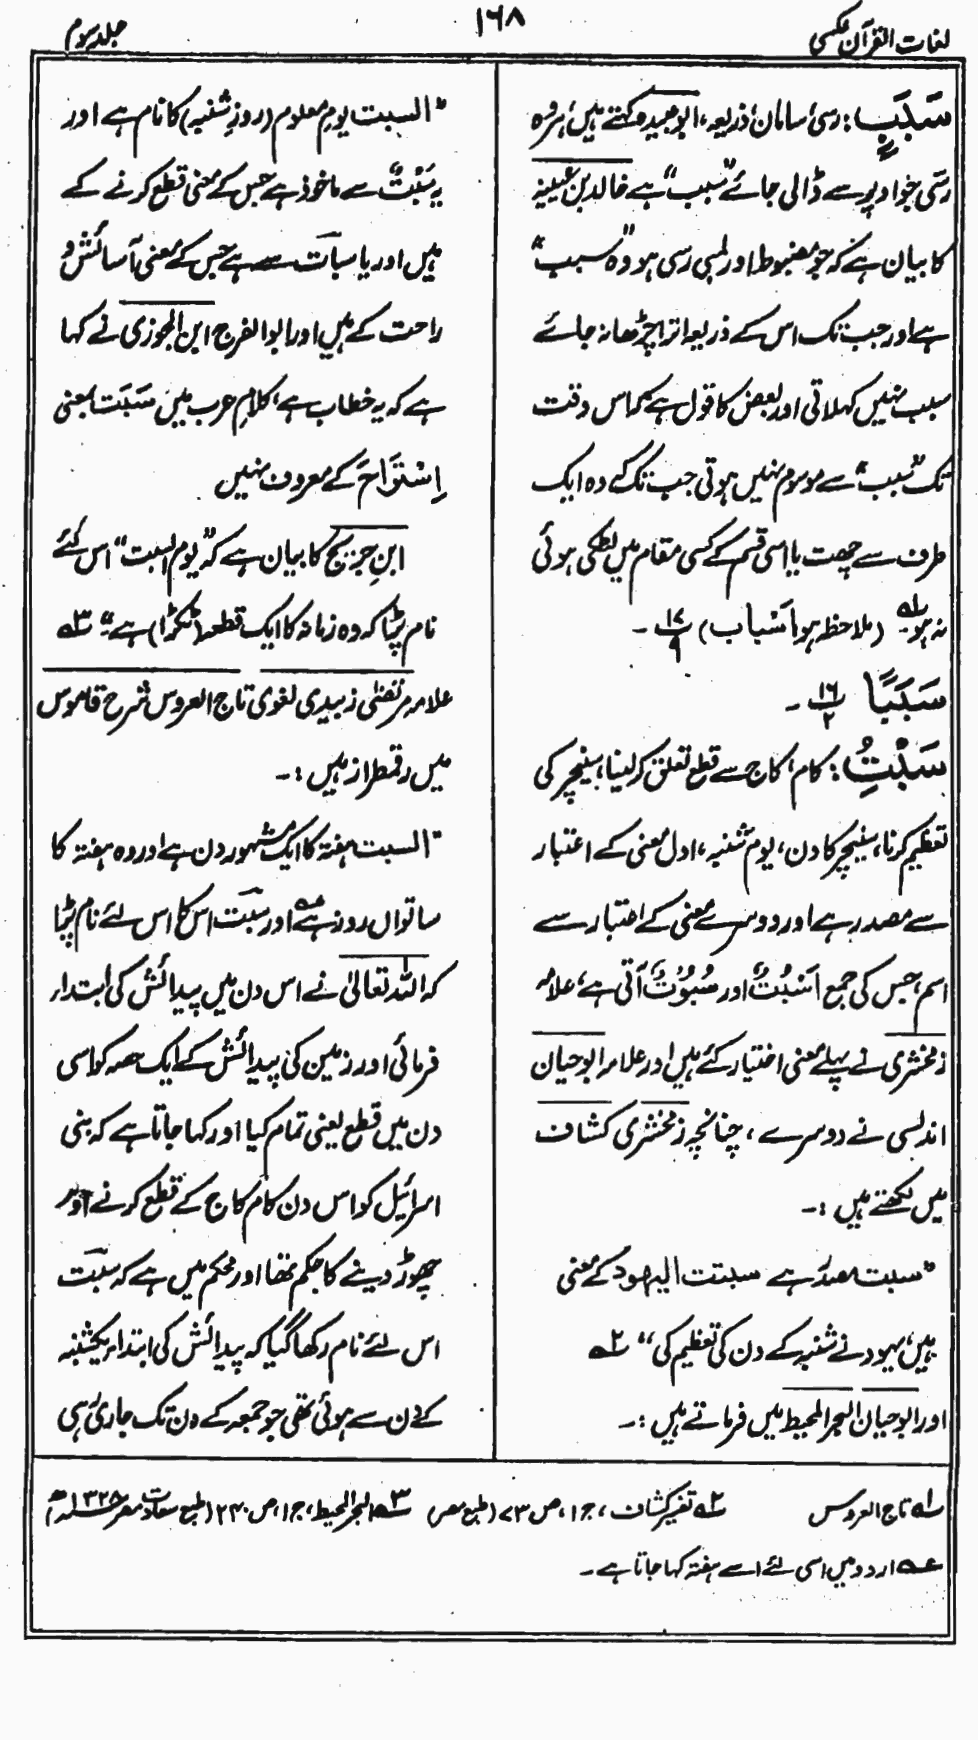 لغات القرآن عکسی
۱۶۸
جلد سوم
سَبَبٍ: رسی، سامان، ذریعہ، ابو عبیدہ کہتے ہیں، ہر وہ
رسّی جو اوپر سے ڈالی جائے ”سبب“ ہے خالد بن
کا بیان ہے کہ جو مضبوط اور لمبی رسی ہو وہ ”سبب“
ہے اور جب تک اس کے ذریعہ اترا چڑھا نہ جائے
سبب نہیں کہلاتی اور بعض کا قول ہے کہ اس وقت
تک ”سبب“ سے موسوم نہیں ہوتی جب تک کہ وہ ایک
طرف سے چھت یا اسی قسم کے کسی مقام میں لٹکی ہوئی
نہ ہو لہ (ملاحظہ ہو اَسْبَاب) ۱۷/۹ ۔
سَبَبًا ۱۶/۲ ۔
سَبْتُ: کام، کاج سے قطع تعلق کرلینا، سینچر کی
تعظیم کرنا، سینچر کا دن، یوم شنبہ، اول معنی کے اعتبار
سے مصدر ہے اور دوسرے معنی کے اعتبار سے
اسم، جس کی جمع اَسْبُتٌ اور سُبُوْتٌ آتی ہے، علامہ
زمخشری نے پہلے معنی اختیار کئے ہیں اور علامہ ابو حیان
اندلسی نے دوسرے، چنانچہ زمخشری کشاف
میں لکھتے ہیں :۔
”سبت مصدر ہے سبتت الیہود کے معنی
ہیں، یہود نے شنبہ کے دن کی تعظیم کی“ ۲ہ
اور ابو حیان البحر المحیط میں فرماتے ہیں :۔
”السبت یوم معلوم (روز شنبہ) کا نام ہے اور
یہ سَبْتٌ سے ماخوذ ہے جس کے معنی قطع کرنے کے
ہیں اور یا سبات سے ہے جس کے معنی آسائش و
راحت کے ہیں اور ابو الفرج ابن الجوزی نے کہا
ہے کہ یہ خطاب ہے، کلام عرب میں سَبَتَ بمعنی
اِسْتَرَاحَ کے معروف نہیں
ابن جریج کا بیان ہے کہ ”یوم السبت“ اس لئے
نام پڑا کہ وہ زمانہ کا ایک قطعہ (ٹکڑا) ہے“ ۳ہ
علامہ مرتضیٰ زبیدی لغوی تاج العروس شرح قاموس
میں رقمطراز ہیں :۔
”السبت ہفتہ کا ایک مشہور دن ہے اور وہ ہفتہ کا
ساتواں روز ہے عہ اور سبت اس کا اس لئے نام پڑا
کہ اللہ تعالیٰ نے اس دن میں پیدائش کی ابتداء
فرمائی اور زمین کی پیدائش کے ایک حصہ کو اسی
دن میں قطع یعنی تمام کیا اور کہا جاتا ہے کہ بنی
اسرائیل کو اس دن کام کاج کے قطع کرنے اور
چھوڑ دینے کا حکم تھا اور محکم میں ہے کہ سبت
اس لئے نام رکھا گیا کہ پیدائش کی ابتداء یکشنبہ
کے دن سے ہوئی تھی جو جمعہ کے دن تک جاری رہی
۱ہ تاج العروس ۲ہ تفسیر کشاف، ج۱، ص ۷۳ (طبع مصر) ۳ہ البحر المحیط، ج۱، ص ۲۴۰ (طبع سعادت مصر ۱۳۲۸ھ)
عہ اردو میں اسی لئے اسے ہفتہ کہا جاتا ہے۔